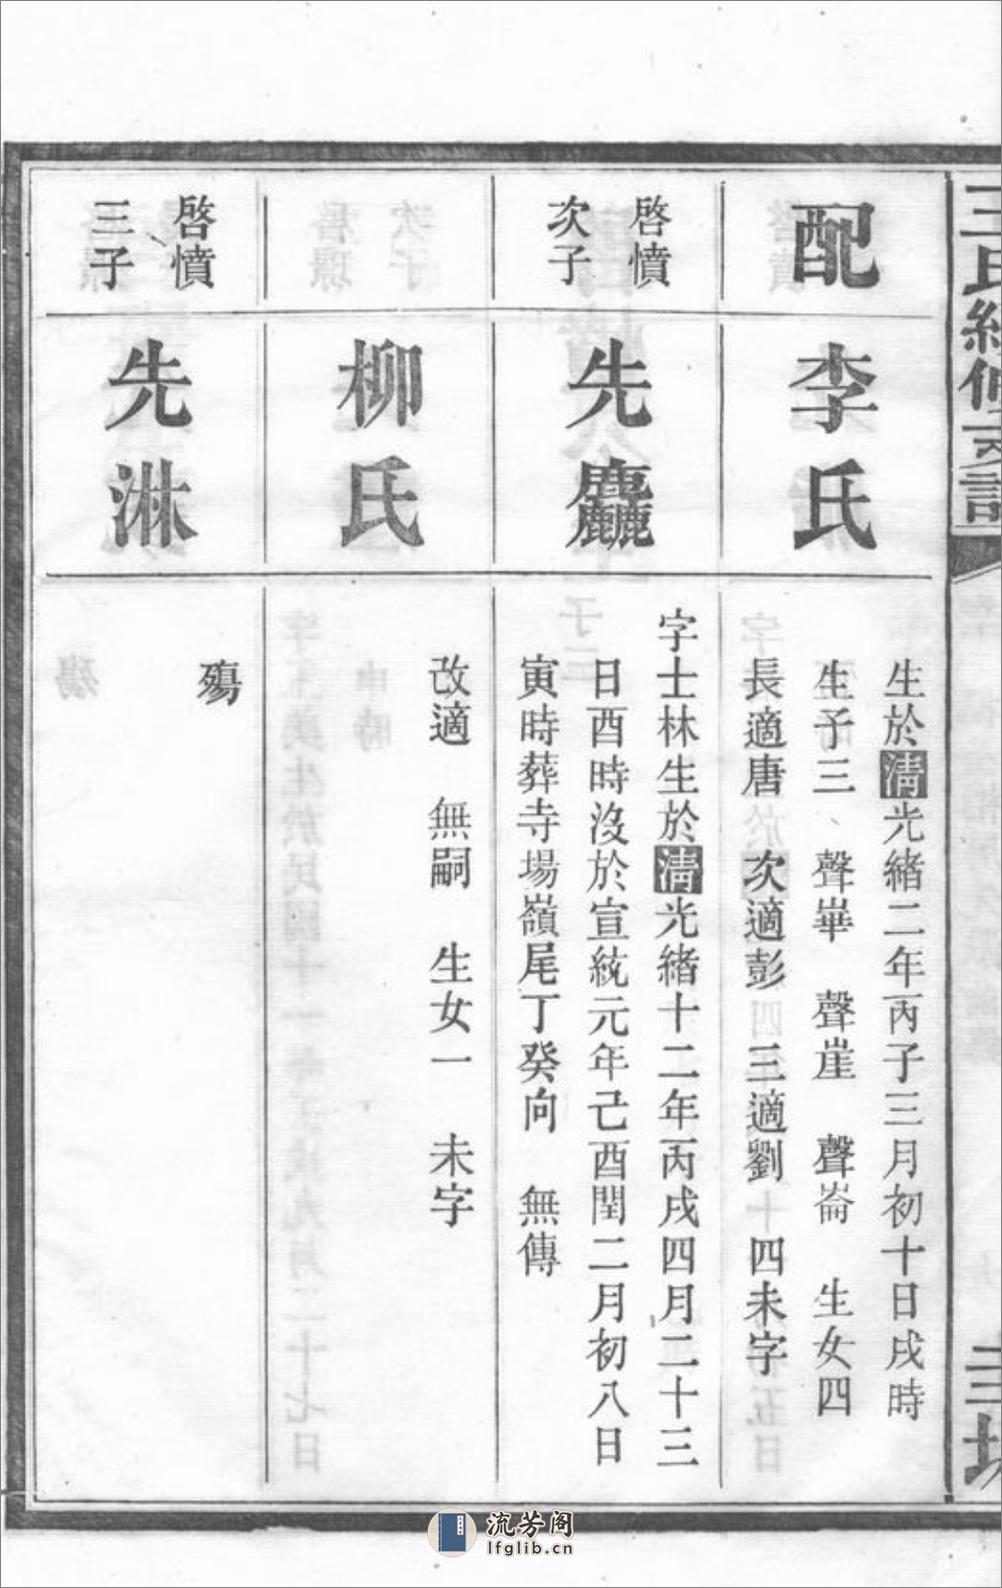 配
李氏
生於清光緒二年丙子三月初十日戌時
生子三 聲崋 聲崖 聲崙 生女四
長適唐 次適彭 三適劉 四未字
啓憤
次子
先麤
字士林生於清光緒十二年丙戌四月二十三
日酉時沒於宣統元年己酉閏二月初八日
寅時葬寺場嶺尾丁癸向 無傳
柳氏
改適 無嗣 生女一 未字
啓憤
三子
先淋
殤
流芳阁
lfglib.cn